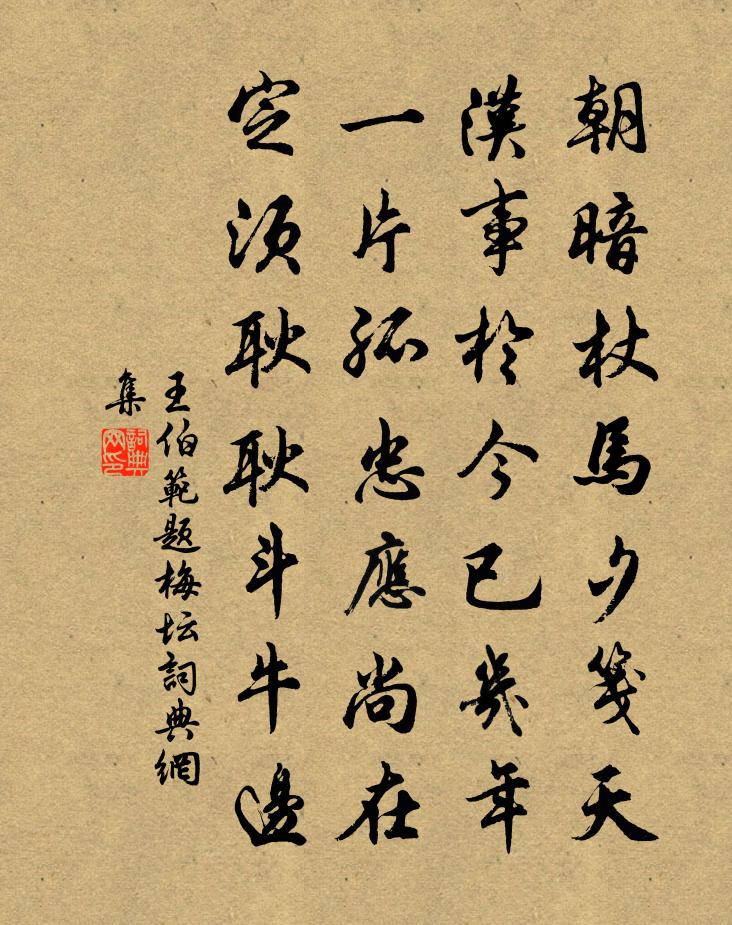 朝暗杖馬夕箋天
漢事於今已幾年
一片孤忠應尚在
定須耿耿斗牛邊
王伯範题梅坛詞典網
集
詞典网印